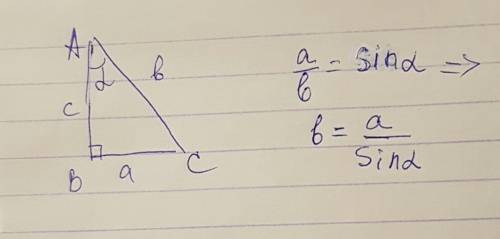 A
b
α
c
B
a
C
a/b = sinα =>
b = a/sinα